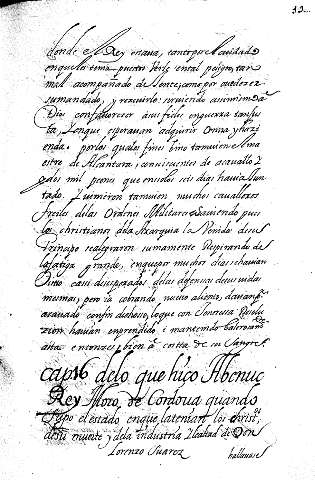 donde el Rey estaua, tanto por el cuidado
en que los tenia puestos verle en tal peligro, tan
mal acompañado de  como por acudir a
su mandado, y reciuirle siruiendo assimismo a
Dios con fauorecer a sus fieles en guerra tan jus
ta, en que esperauan adquirir onra y hazi
enda. por los quales fines vino tamuien el ma
estre de Alcantara, con  de a cauallo y
dos mil peones que en solos seis dias hauia jun
tado. Vinieron tamuien muchos caualleros
freiles de las Ordenes Militares sauiendo pues
los christianos dela Axarquia la Venida de su
Principe se alegraron sumamente Respirando de
la fatiga grande, en que por muchos dias se hauian
visto casi desesperados de las defensas de sus vidas
mismas, pero ia cobrando nueuo aliento, deseauan
 con fin dichoso, lo que con generosa Resolu
zion hauian emprendido i mantenido 
asta entonzes i bien a costa de su sangre.
cap 16 delo, que hiço Abenuc
Rey Moro, de Cordoua quando
supo el estado en que le tenian los christianos
de su muerte y de la industria i lealtad de Don
Lorenzo Suarez
hallauase